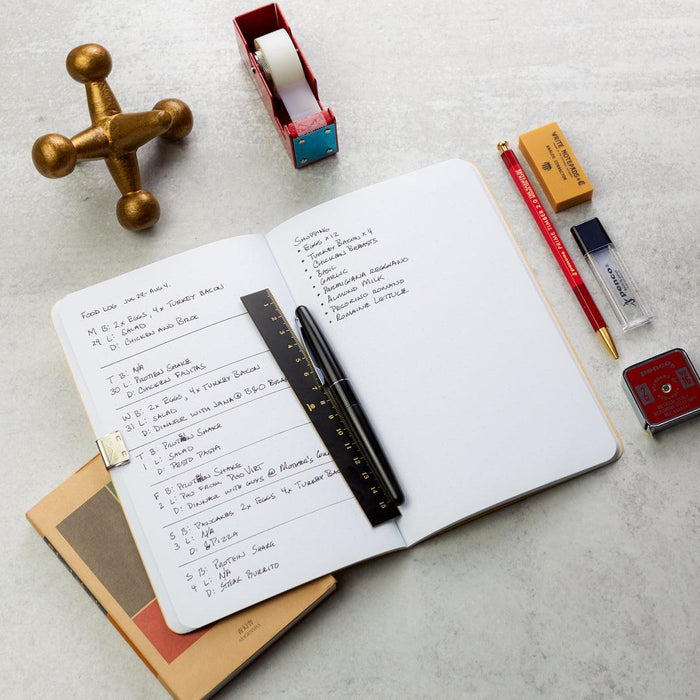 Food Log Jul 29 - Aug 4.
M B: 2x Eggs, 4x Turkey Bacon
29 L: Salad
D: Chicken and Broc
T B: N/A
30 L: Protein Shake
D: Chicken Fajitas
W B: 2x Eggs, 4x Turkey Bacon
31 L: Salad
D: Dinner with Jana @ B&O
T B: Protein Shake
1 L: Salad
D: Pesto Pasta
F B: Protein Shake
2 L: Pho from Pho Viet
D: Dinner with guys @ Mother's
S B: Pancakes 2x Eggs 4x Turkey
3 L: N/A
D: Pizza
S B: Protein Shake
4 L: N/A
D: Steak Burrito
Shopping
• Eggs x12
• Turkey Bacon x4
• Chicken Breasts
• Basil
• Garlic
• Parmigiana Reggiano
• Almond Milk
• Pecorino Romano
• Romaine Lettuce
1
2
3
4
5
6
7
8
9
10
11
12
13
14
15
WRITE NOTEPADS & CO
PRIME TIMBER 2.0
penco
penco